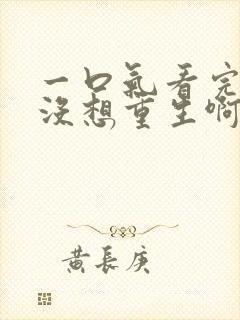 一口氣看完
沒想重生啊
黃長庚